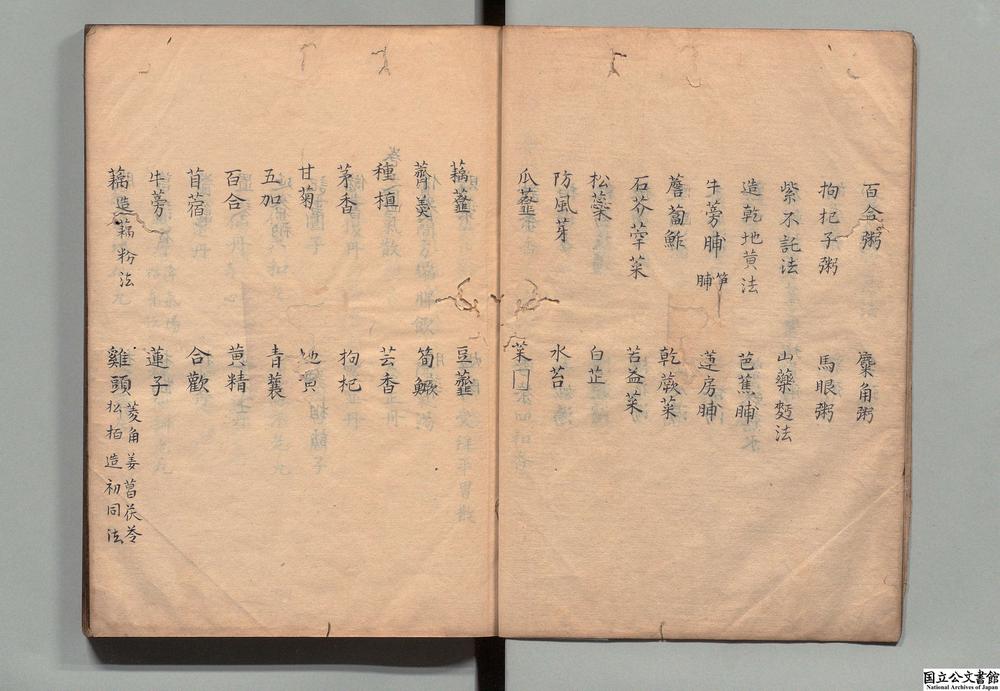 百合粥 麋角粥
枸杞子粥 馬眼粥
紫不託法 山藥麪法
造乾地黃法 芭蕉脯
牛蒡脯 笋脯 蓮房脯
薝蔔鮓 乾蕨菜
石芥葶菜 苦益菜
松蘂 白芷
防風芽 水苔
瓜虀 菜
藕虀 豆虀
薺羹 筍鱖
種植 芸香
茅香 枸杞
甘菊 地黃
五加 青蘘
百合 黃精
苜蓿 合歡
牛蒡 蓮子
藕 造藕粉法 雞頭 菱角姜菖茯苓松柏造初同法
国立公文書館
National Archives of Japan